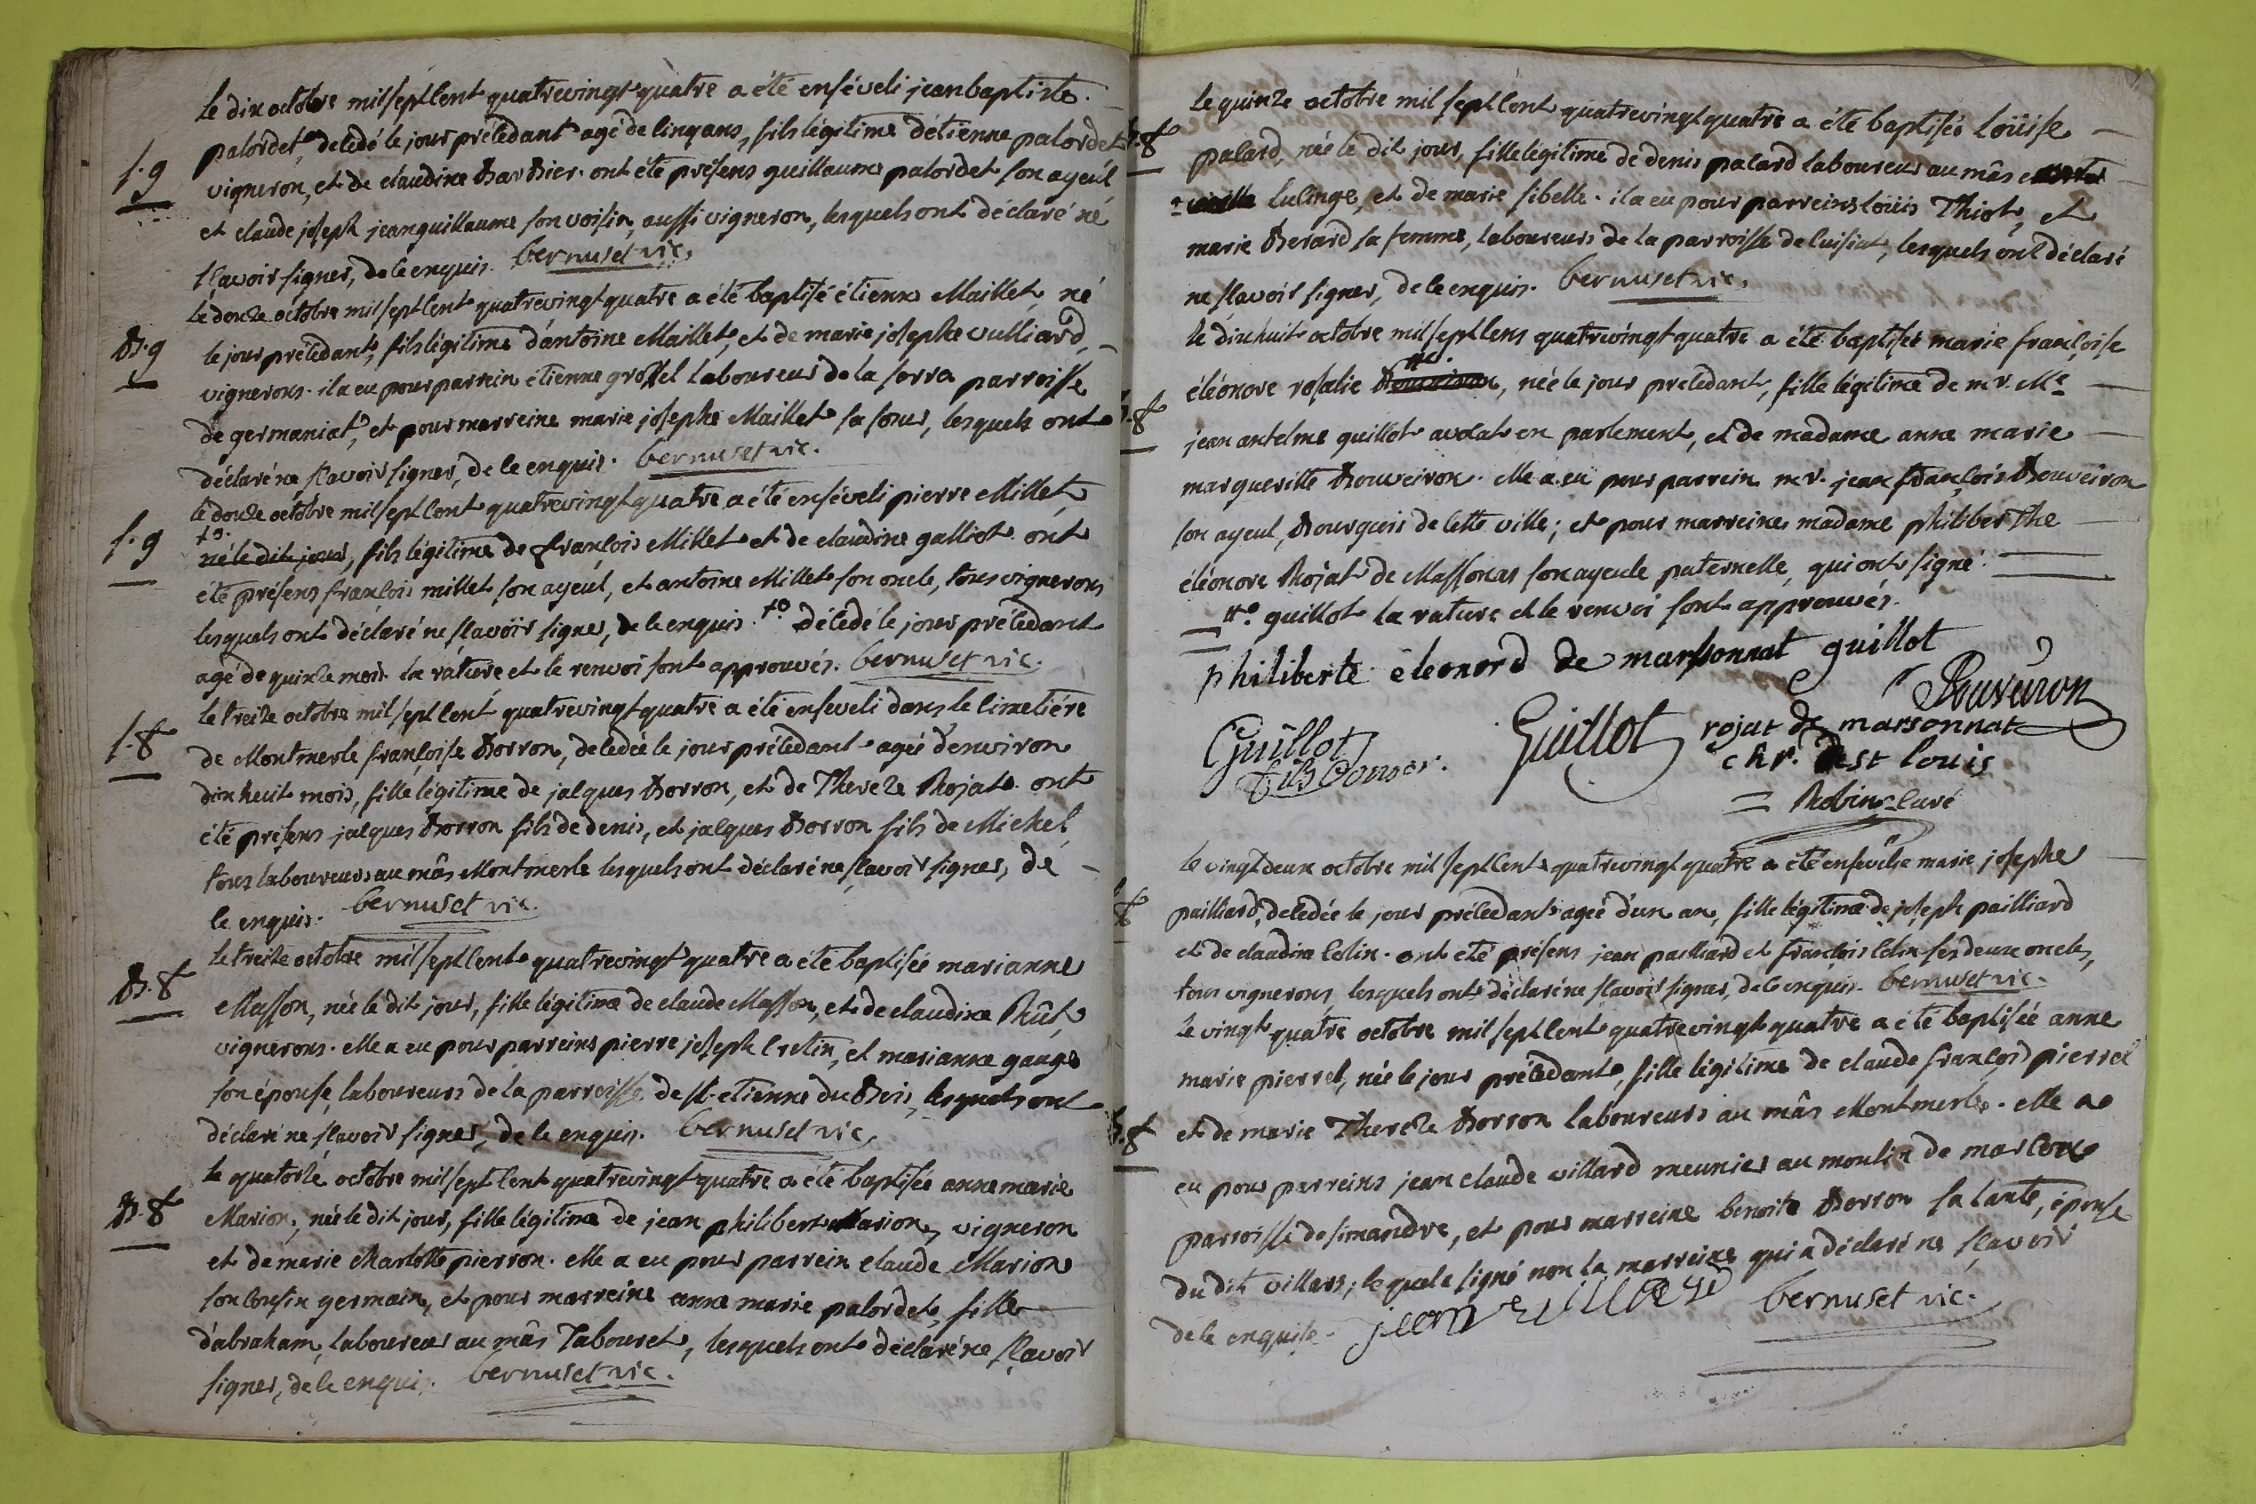 le dix octobre mil sept cent quatrevingt quatre a été enséveli jean baptiste
palordet, decedé le jour précédant agé de cinq ans, fils légitime d'étienne palordet
S. g
vigneron, et de claudine Barbier. ont été présens guillaume palordet son ayeul
et claude joseph jeanguillaume son voisin, aussi vigneron, lesquels ont déclaré né
sçavoir signer, de ce enquis. bernuset vic.
le douze octobre mil sept cent quatrevingt quatre a été baptisé étienne Maillet, né
B. g
le jour précédant, fils légitime d'antoine Maillet, et de marie josephe vulliard,
vignerons. il a eu pour parrein étienne groszel laboureur de la serra parroisse
de germaniat, et pour marreine marie josephe Maillet sa soeur, lesquels ont
déclaré ne sçavoir signer, de ce enquis. bernuset vic.
le douze octobre mil sept cent quatrevingt quatre a été enséveli pierre Millet,
S. g
+o. né le dit jour, fils légitime de françois Millet et de claudine galliot. ont
été présens françois millet son ayeul, et antoine Millet son oncle, tous vignerons
lesquels ont déclaré ne sçavoir signer, de ce enquis. +o décedé le jour précédant
agé de quinze mois. la rature et le renvoi sont approuvés. bernuset vic.
le treize octobre mil sept cent quatrevingt quatre a été enseveli dans le cimetiére
S. 8
de Montmerle françoise Borron, decedée le jour précédant agée d'environ
dix huit mois, fille légitime de jacques Borron, et de Therese Rojat. ont
été présens jacques Borron fils de denis, et jacques Borron fils de Michel,
tous laboureurs au mâs Montmerle lesquels ont déclaré ne sçavoir signer, de
ce enquis. bernuset vic.
le treize octobre mil sept cent quatrevingt quatre a été baptisée marianne
B. 8
Masson, née le dit jour, fille légitime de claude Masson, et de claudine Rût,
vignerons. elle a eu pour parreins pierre joseph cretin, et marianne gauge
son épouse, laboureurs de la parroisse de st. etienne du Bois, lesquels ont
déclaré ne sçavoir signer, de ce enquis. bernuset vic.
le quatorze octobre mil sept cent quatrevingt quatre a été baptisée anne marie
B. 8
Marion, née le dit jour, fille légitime de jean philibert Marion, vigneron
et de marie charlotte pierron. elle a eu pour parrein claude Marion
son cousin germain, et pour marreine anne marie palordet, fille
d'abraham, laboureur au mâs Tabouret, lesquels ont déclaré ne sçavoir
signer, de ce enquis. bernuset vic.
le quinze octobre mil sept cent quatrevingt quatre a été baptisée loüise
B. 8
palard, née le dit jour, fille légitime de denis palard laboureur au mâs
culinge, et de marie sibelle. il a eu pour parreins loüis Thiot, et
marie Berard sa femme, laboureurs de la parroisse de cuisiat, lesquels ont déclaré
ne sçavoir signer, de ce enquis. bernuset vic.
le dix huit octobre mil sept cens quatrevingt quatre a été baptisée marie françoise
B. 8
éléonore rosalie Bouveiron, née le jour precedant, fille légitime de mr. Me
jean antelme guillot avocat en parlement, et de madame anne marie
margueritte Bouveiron. elle a eu pour parrein mr. jean françois Bouveiron
son ayeul, Bourgeois de cette ville; et pour marreine madame philiberthe
éléonore Rojat de Massonas son ayeule paternelle, qui ont signé.
#o guillot la rature et le renvoi sont approuvés.
philiberte éléonord de marsonnat guillot
Bouveiron
Guillot
fils
Guillot
rojat de marsonnat
chr. de st louis
Robin curé
le vingt deux octobre mil sept cent quatrevingt quatre a été ensévelie marie josephe
S. 8
pailliard, decedée le jour précédant agée d'un an, fille légitime de joseph pailliard
et de claudine colin. ont été présens jean pailliard et françois colin ses deux oncles,
tous vignerons, lesquels ont déclaré ne sçavoir signer, de ce enquis. bernuset vic.
le vingt quatre octobre mil sept cent quatrevingt quatre a été baptisée anne
marie pierrel, née le jour précédant, fille légitime de claude françois pierrel
B. 8
et de marie Thereze Borron laboureurs au mâs Montmerle. elle a
eu pour parreins jean claude villard meunier au moulin de marcoux
parroisse de simandre, et pour marreine benoite Borron sa tante, épouse
du dit villars; lequel a signé non la marreine qui a déclaré ne sçavoir
de ce enquise. bernuset vic.